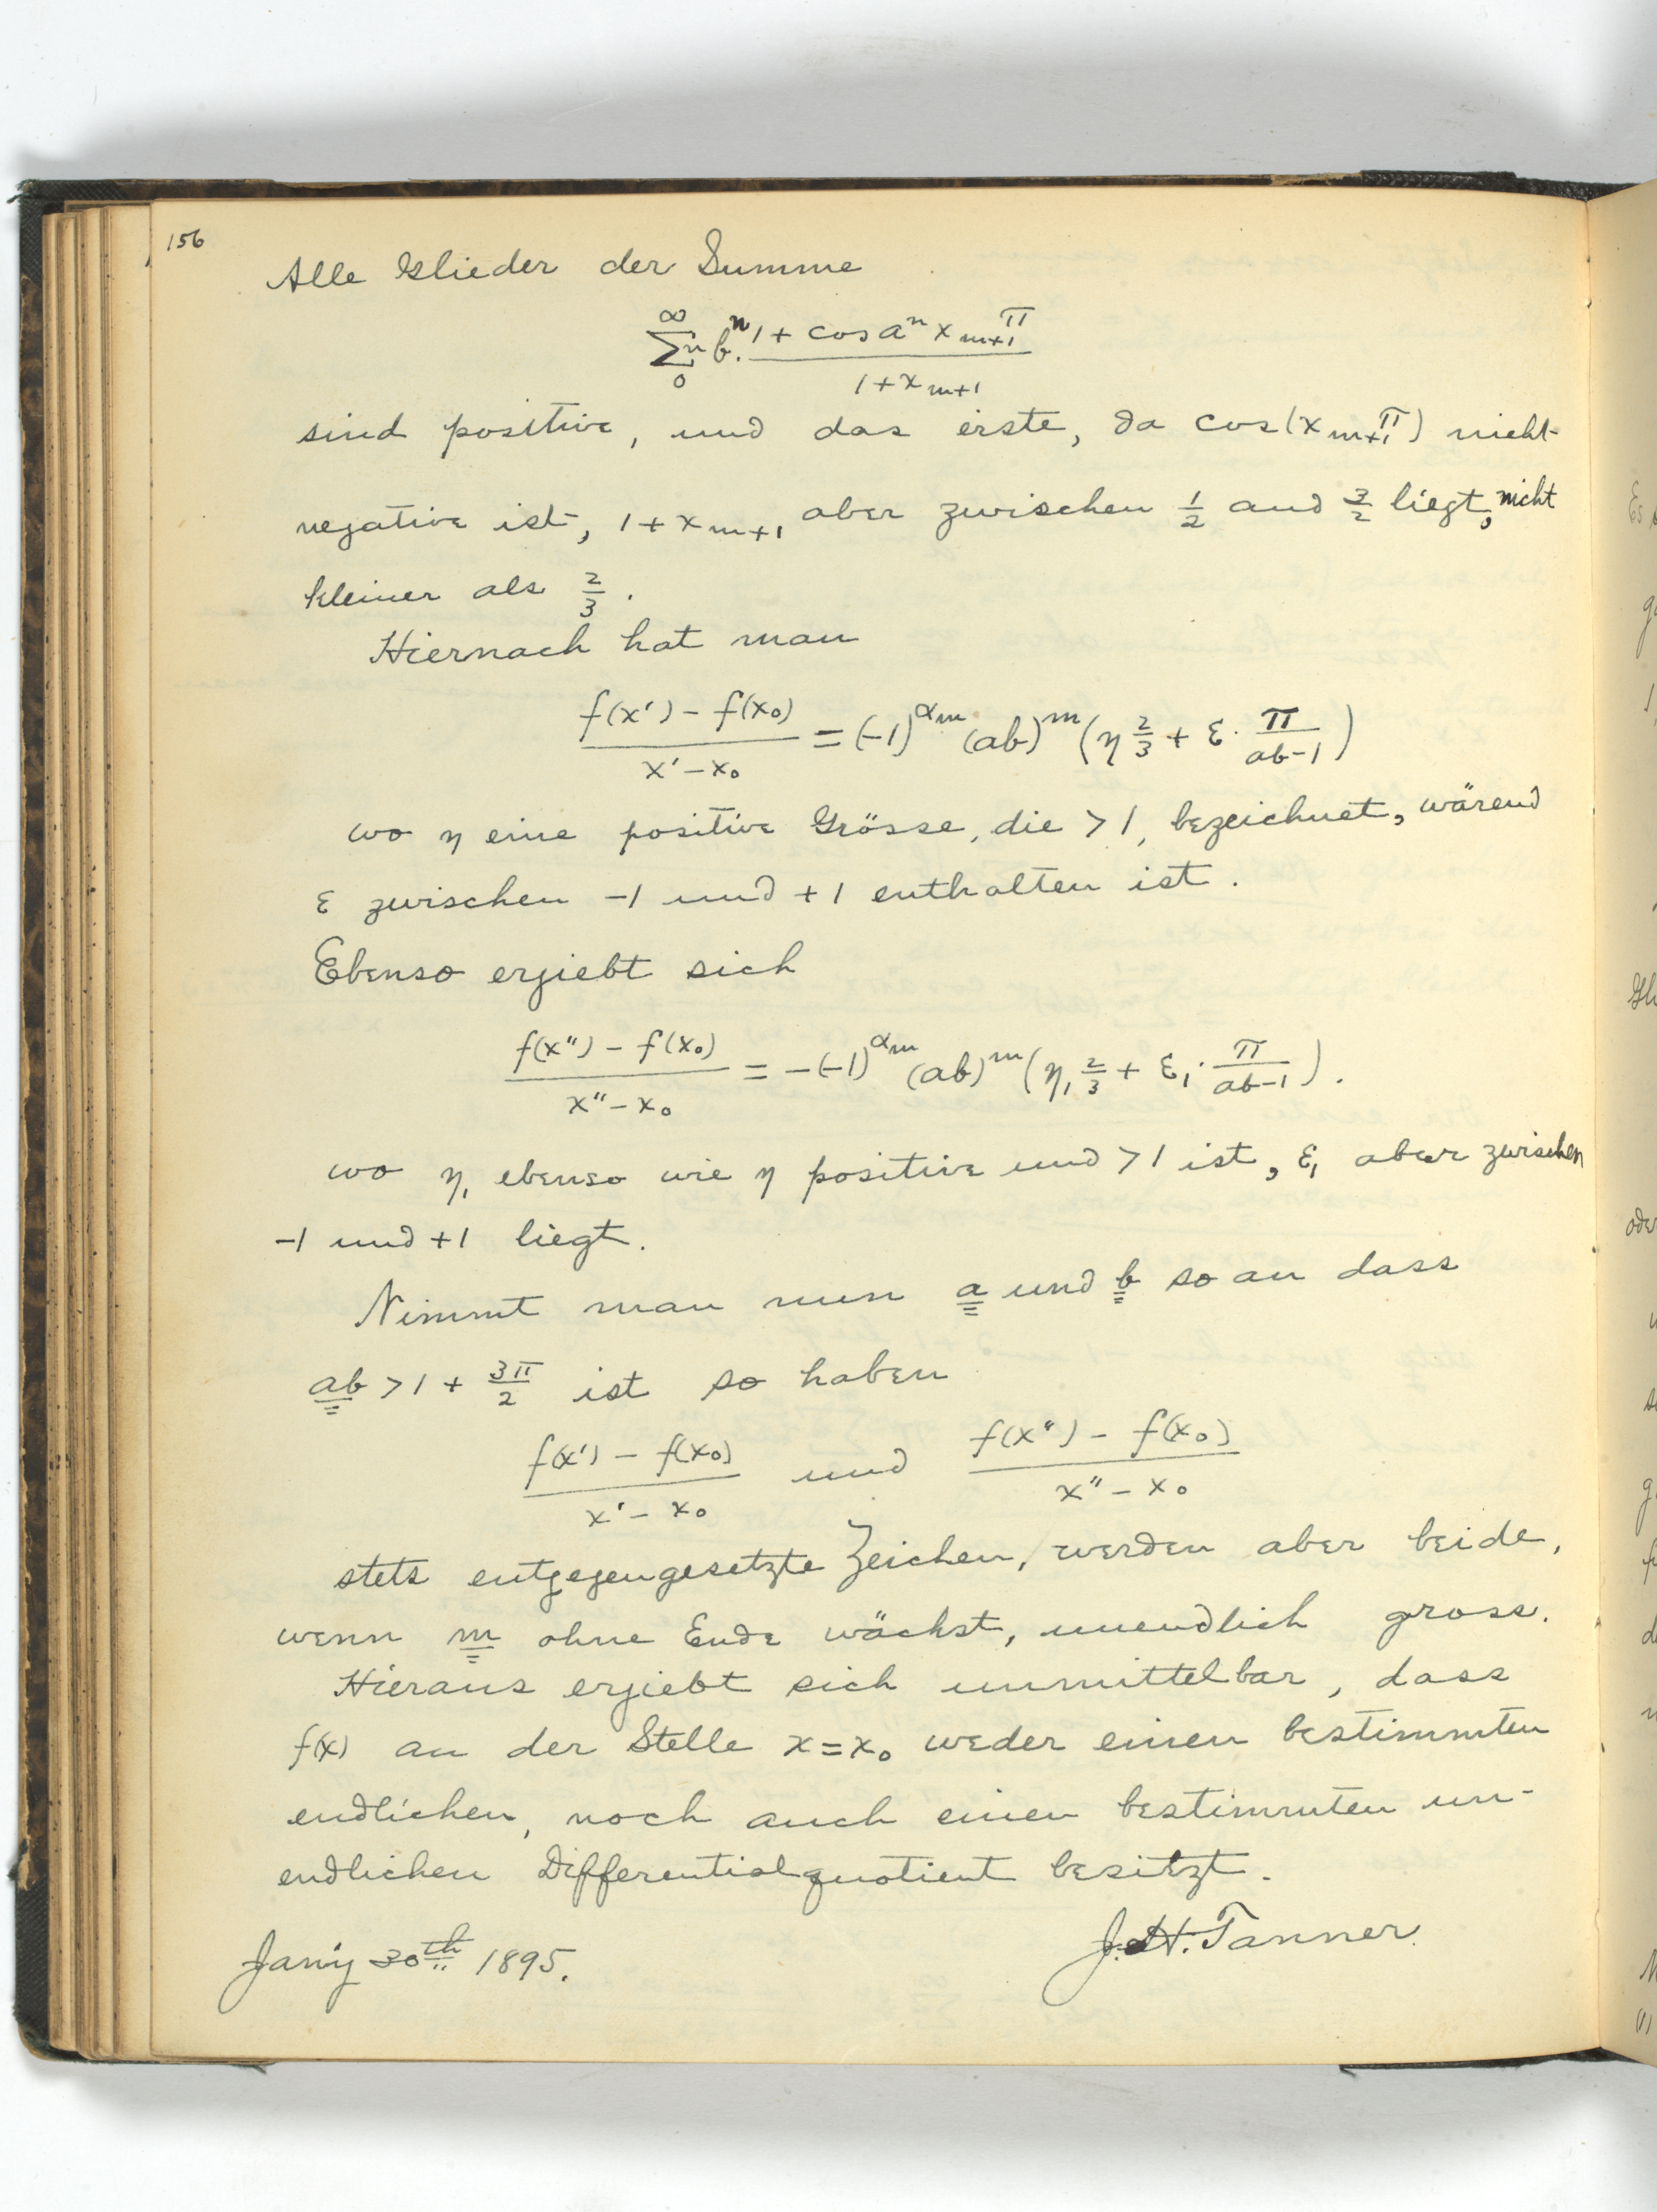 156
Alle Glieder der Summe
∞ ∑n 0 bⁿ. (1 + cos aⁿ x_{m+1} π) / (1 + x_{m+1})
sind positive, und das erste, da cos(x_{m+1} π) nicht
negative ist, 1 + x_{m+1} aber zwischen 1/2 and 3/2 liegt, nicht
kleiner als 2/3.
Hiernach hat man
(f(x') - f(x₀)) / (x' - x₀) = (-1)^{α_m} (ab)^m (η 2/3 + ε · π/(ab-1))
wo η eine positive Grösse, die > 1, bezeichnet, wärend
ε zwischen -1 und +1 enthalten ist.
Ebenso ergiebt sich
(f(x'') - f(x₀)) / (x'' - x₀) = -(-1)^{α_m} (ab)^m (η₁ 2/3 + ε₁ · π/(ab-1)).
wo η₁ ebenso wie η positive und > 1 ist, ε₁ aber zwischen
-1 und +1 liegt.
Nimmt man nun a und b so an dass
ab > 1 + 3π/2 ist so haben
(f(x') - f(x₀)) / (x' - x₀) und (f(x'') - f(x₀)) / (x'' - x₀)
stets entgegengesetzte Zeichen, werden aber beide,
wenn m ohne Ende wächst, unendlich gross.
Hieraus ergiebt sich unmittelbar, dass
f(x) an der Stelle x = x₀ weder einen bestimmten
endlichen, noch auch einen bestimmten un-
endlichen Differentialquotient besitzt.
J. H. Tanner.
Jan'y 30th 1895.